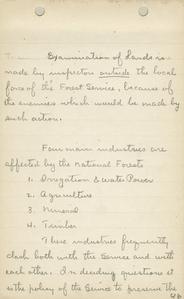 Examination of Lands is
made by inspectors outside the local
force of the Forest Service, because of
the enemies which would be made by
such action.
Four main industries are
affected by the National Forests
1. Irrigation & water Power
2. Agriculture
3. Mineral
4. Timber
These industries frequently
clash both with the Service and with
each other. In deciding questions it
is the policy of the Service to preserve the